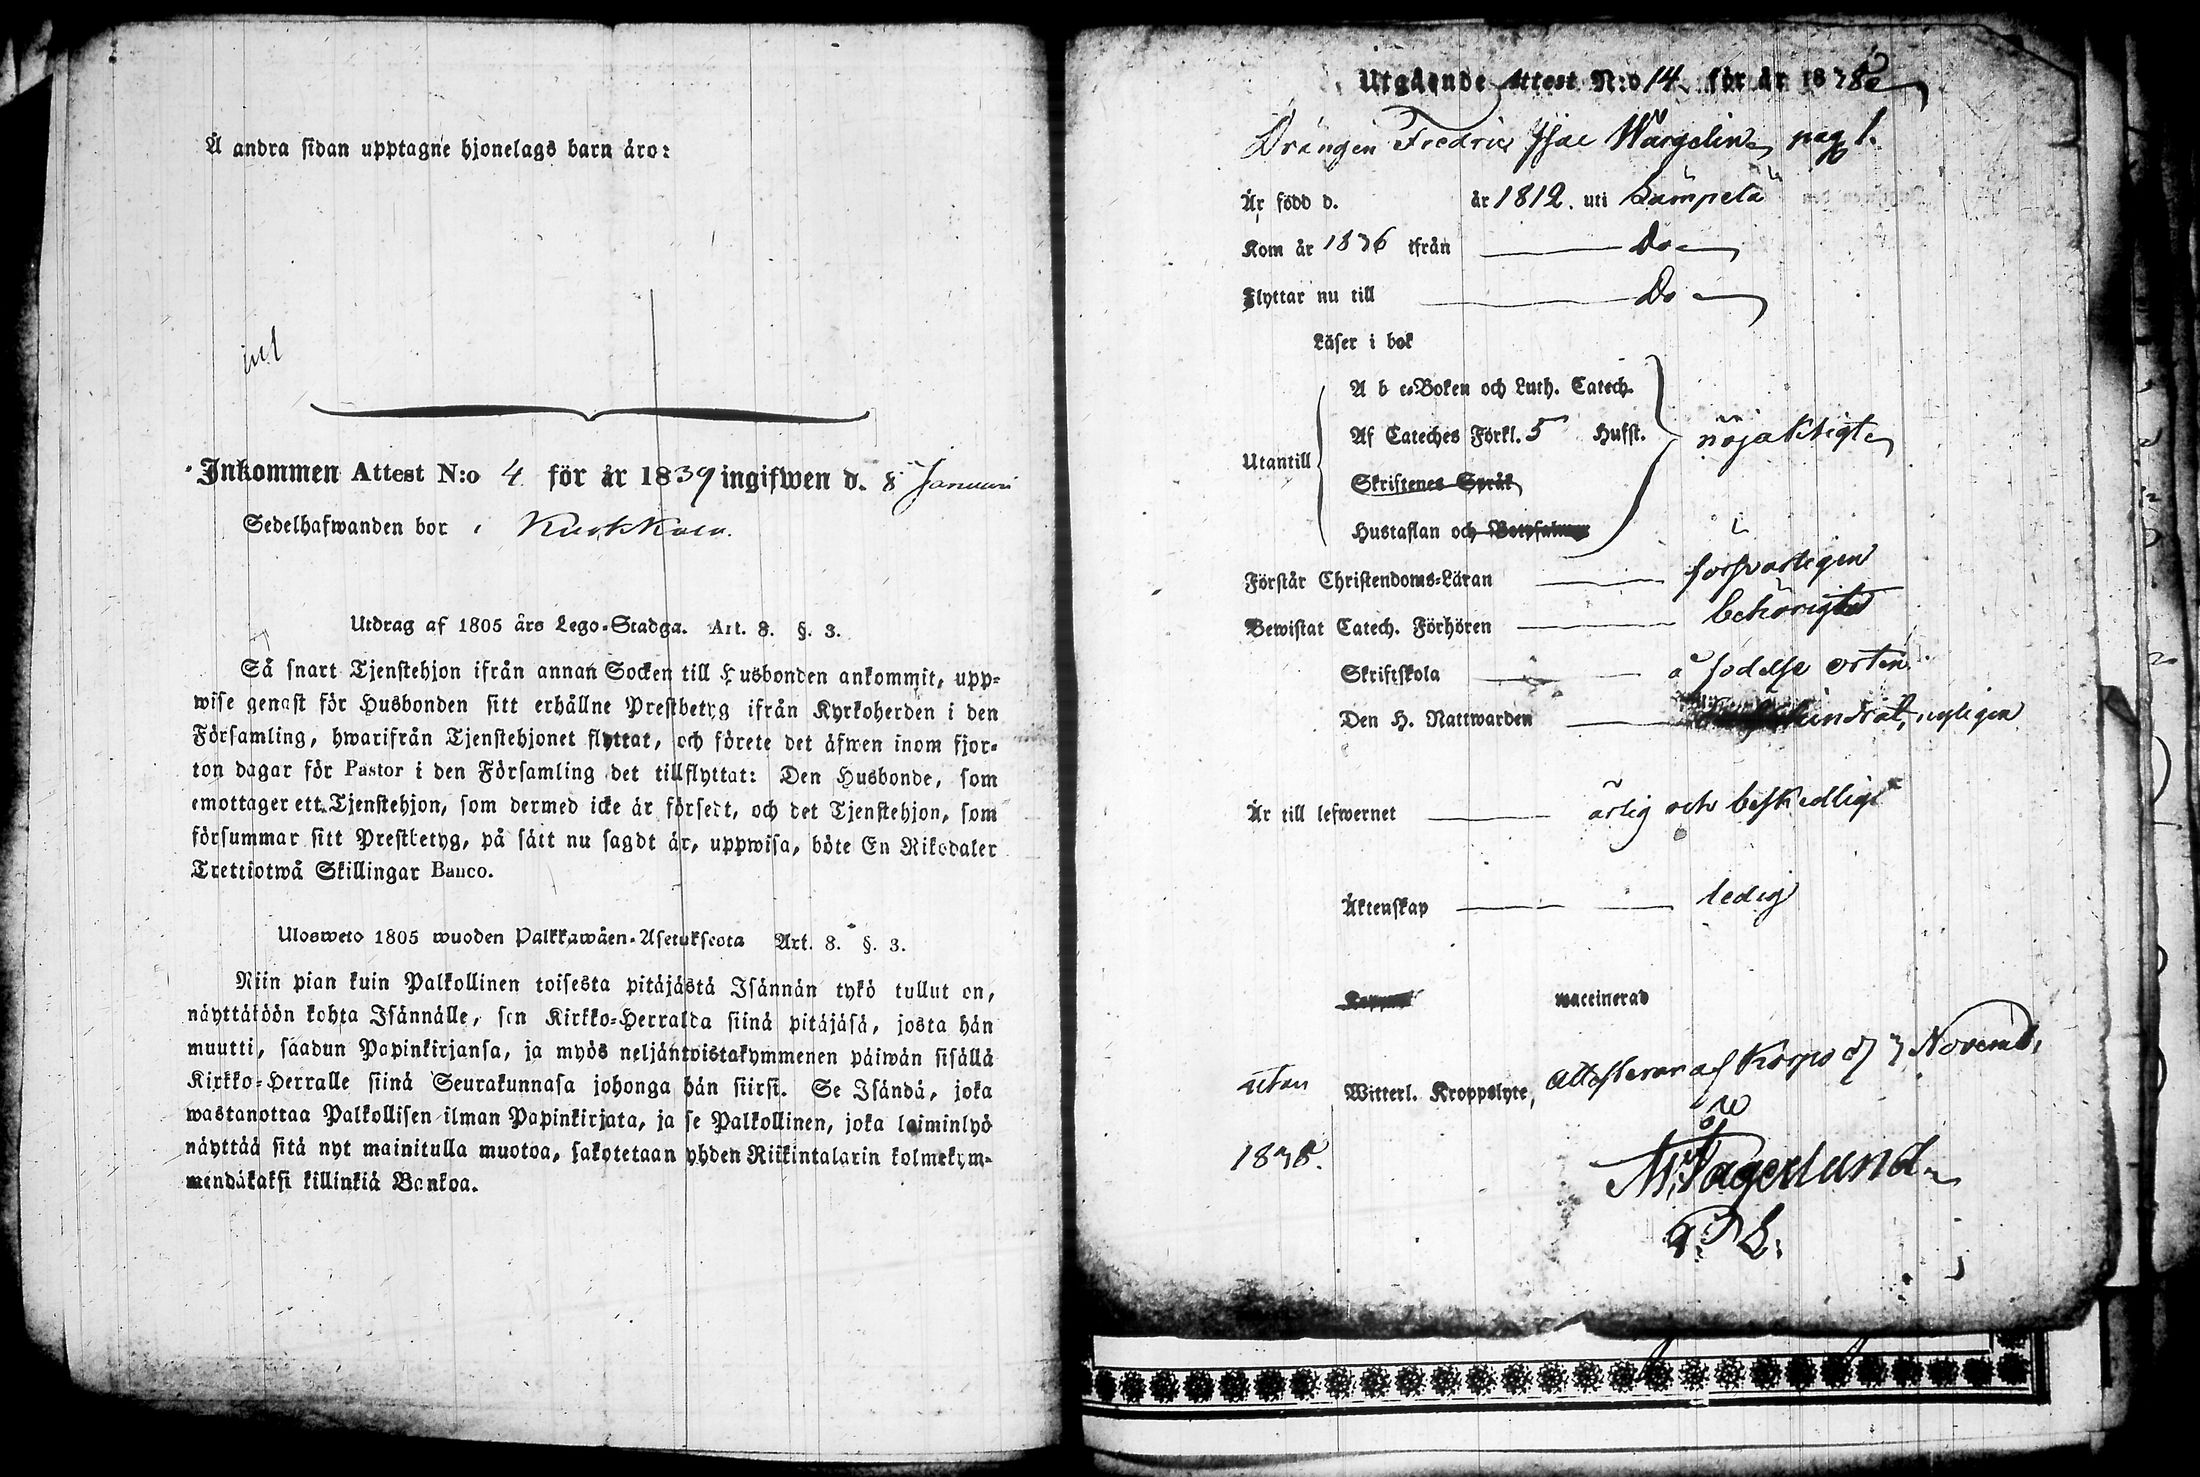 Å andra sidan upptagne hjonelags barn äro:
Inkommen Attest N:o 4 för år 1839 ingifwen d. 8 Januari
Sedelhafwanden bor i
Utdrag af 1805 års Lego-Stadga. Art. 8. §. 3.
Så snart Tjenstehjon ifrån annan Socken till Husbonden ankommit, upp-
wise genast för Husbonden sitt erhållne Prestbetyg ifrån Kyrkoherden i den
Församling, hwarifrån Tjenstehjonet flyttat, och förete det äfwen inom fjor-
ton dagar för Pastor i den Församling det tillflyttat: Den Husbonde, som
emottager ett Tjenstehjon, som dermed icke är försedt, och det Tjenstehjon, som
försummar sitt Prestbetyg, på sätt nu sagdt är, uppwisa, böte En Riksdaler
Trettiotwå Skillingar Banco.
Ulosweto 1805 wuoden Palkkawäen-Asetuksesta Art. 8. §. 3.
Niin pian kuin Palkollinen toisesta pitäjästä Isännän tykö tullut on,
näyttäköön kohta Isännälle, sen Kirkko-Herralda siinä pitäjäsä, josta hän
muutti, saadun Papinkirjansa, ja myös neljäntoistakymmenen päiwän sisällä
Kirkko-Herralle siinä Seurakunnasa johonga hän siirsi. Se Isändä, joka
wastanottaa Palkollisen ilman Papinkirjata, ja se Palkollinen, joka laiminlyö
näyttää sitä nyt mainitulla muotoa, sakotetaan yhden Riikintalarin kolmekym-
mendäkaksi killinkiä Bankoa.
Utgående Attest N:o 14 för år 1838
Drängen Fredric Isac Wargelin pag 1.
Är född d. år 1812. uti Kumpela
Kom år 1836 ifrån Do
Flyttar nu till Do
Läser i bok
A b c-Boken och Luth. Catech.
Af Cateches Förkl. 5 Hufst. nöjaktigt
Utantill
Skriftenes Språk
Hustaflan och Botpsalmer
Förstår Christendoms-Läran försvarligen
Bewistat Catech. Förhören behörigt
Skriftskola å födelse orten
Den H. Nattwarden nyligen
Är till lefwernet ärlig och beskedlig
Äktenskap ledig
Koppor waccinerad
utan Witterl. Kroppslyte, attesterar af Korpo d 7 Novemb.
1838.
M. Fagerlund